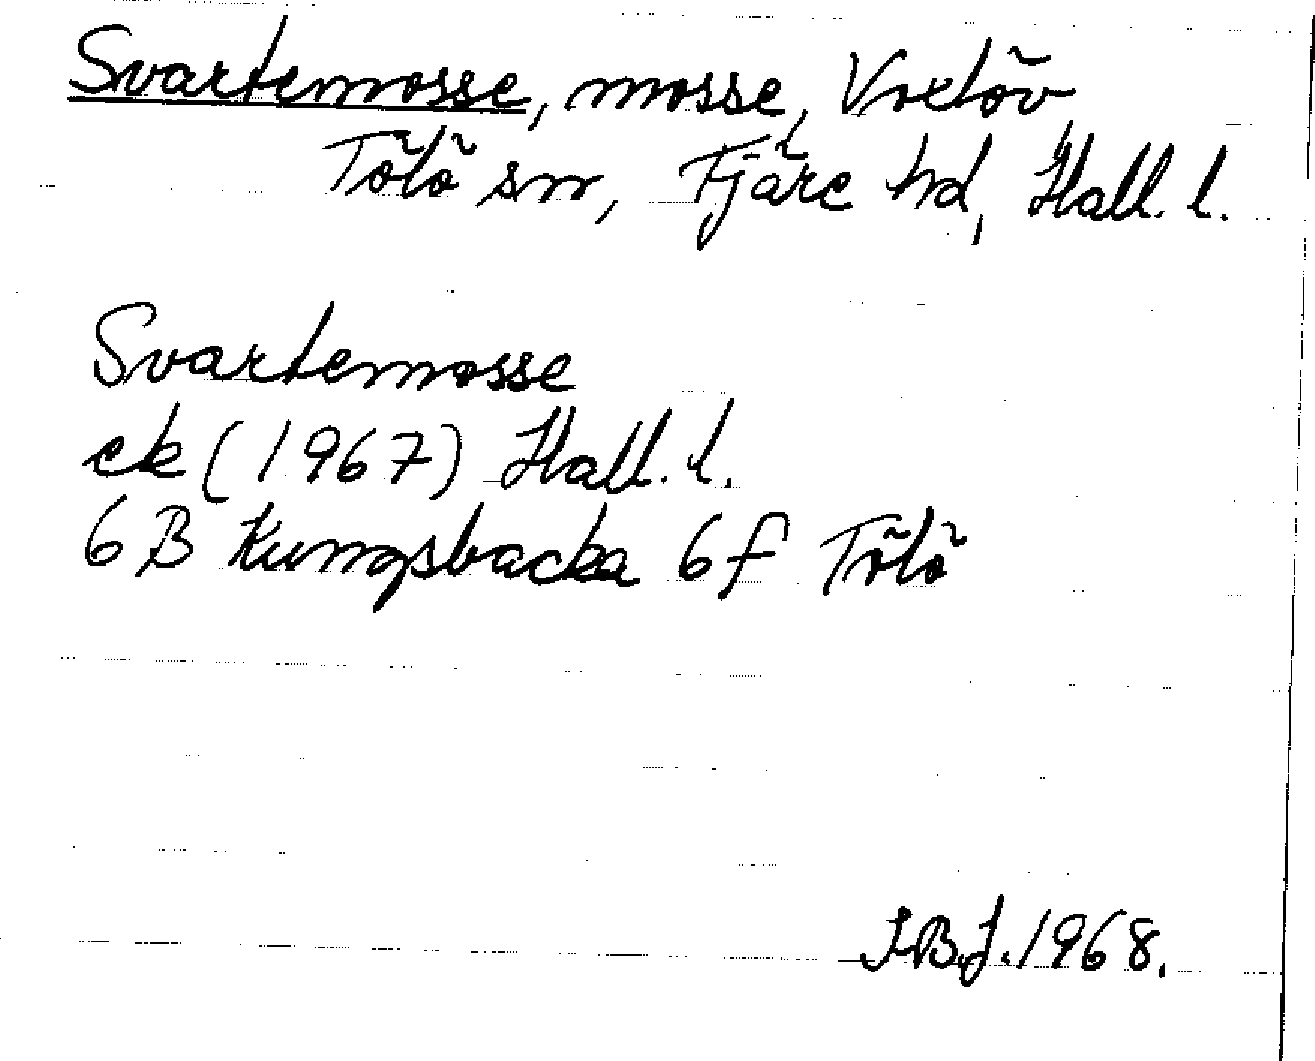 Svartemosse, mosse, Voxlöv
Tölö sn, Fjäre hd, Hall. l.
Svartemosse
ek (1967) Hall. l.
6 B Kungsbacka 6 f Tölö
I.B.J. 1968.